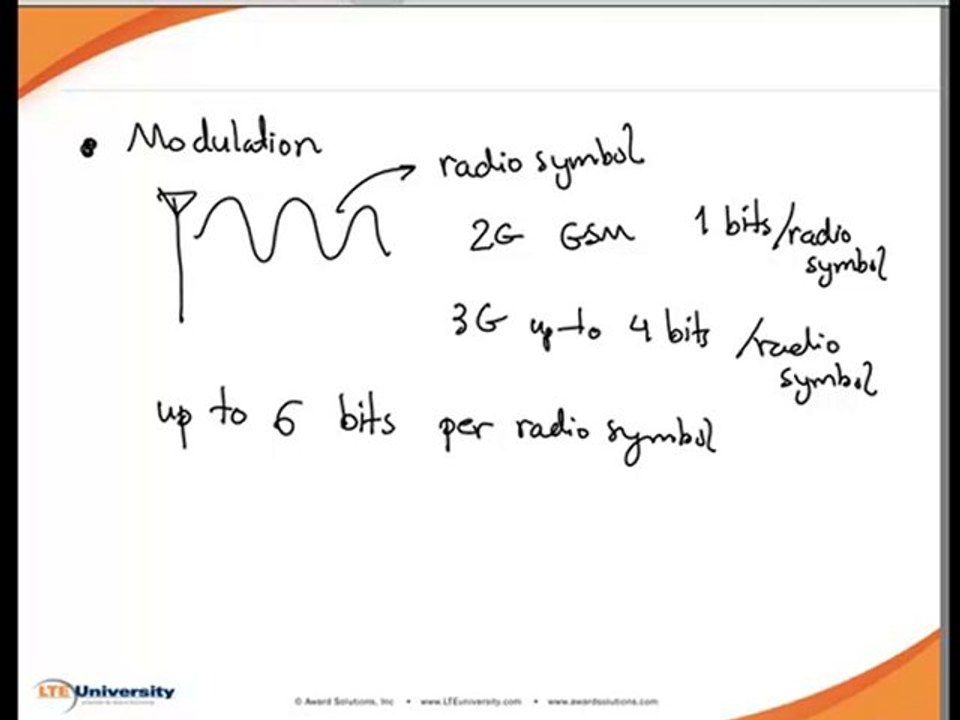 • Modulation
radio symbol
2G GSM 1 bits/radio
symbol
3G up to 4 bits /radio
symbol
up to 6 bits per radio symbol
LTE University
© Award Solutions, Inc • www.LTEuniversity.com • www.awardsolutions.com